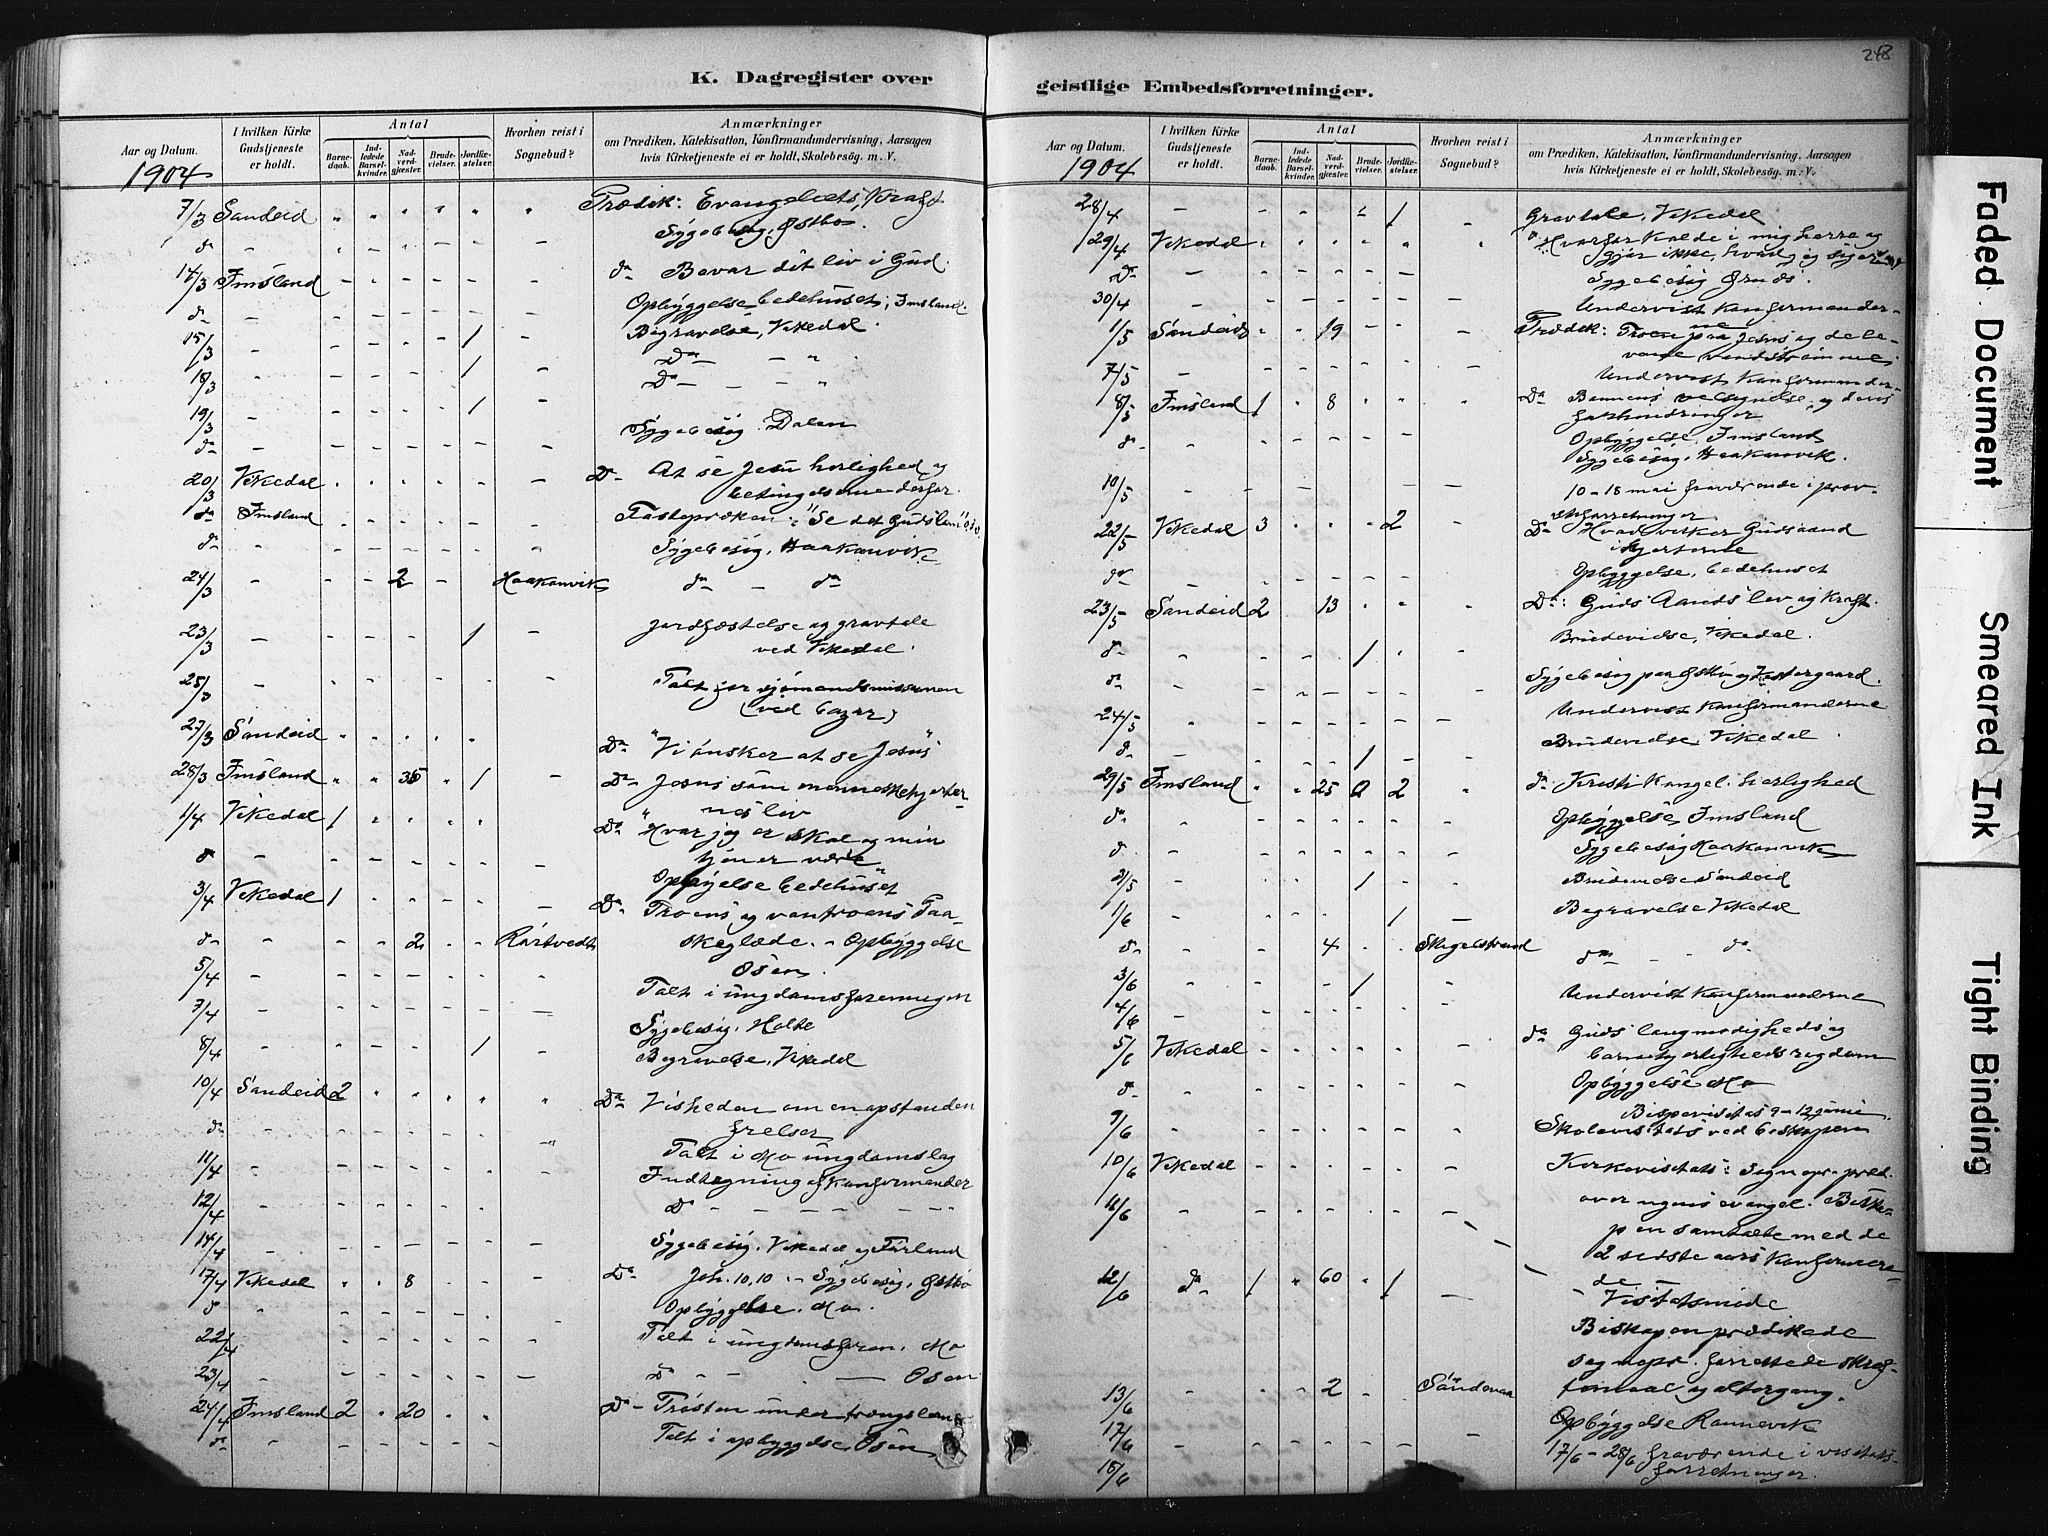 K. Dagregister over
Aar og Datum.
1904
I hvilken Kirke Gudstjeneste er holdt.
Antal
Barnedaab.
Indledede Barselkvinder.
Nadverdgjæster.
Brudevielser.
Jordfæstelser.
Hvorhen reist i Sognebud?
Anmærkninger
om Prædiken, Katekisation, Konfirmandundervisning, Aarsagen
hvis Kirketjeneste ei er holdt, Skolebesög. m. V.
7/3 Sandeid " " " " " " Prædik: Evangeliets Kraft
dº " - - - - - - Sygebesøg, Østbø
14/3 Imsland - - - - - dº Bevar dit liv i Gud.
Opbyggelse bedehuset, Imsland
dº -
15/3 - / - Begravelse, Vikedal.
18/3 - / - Dº - "
19/3 - / - Dº - - "
dº - Sygebesøg. Dalen
20/3 Vikedal Dº At se Jesu herlighed og
betingelserne derfor.
dº Imsland Fastepræken: "Se det Guds lam"
dº - Sygebesøg, Haakonvik
24/3 - 2 - Haakonvik dº - dº
23/3 - / - Jordfæstelse og gravtale
ved Vikedal.
25/3 - Talt for sjømandsmissionen
(ved bazar)
27/3 Sandeid Dº "Vi ønsker at se Jesus"
28/3 Imsland 35 / - Dº Jesus som menneskehjerter-
nes liv
1/4 Vikedal 1 Dº "Hvor jeg er skal og min
tjener være"
dº - Opbyggelse bedehuset
3/4 Vikedal 1 Dº Troens og vantroens Paa-
skeglæde. - Opbyggelse
Ösen
dº " 2 Rörtvedt
5/4 - Talt i ungdomsforeningen
7/4 - Sygebesøg. Holte
8/4 - / - Begravelse, Vikedal
10/4 Sandeid 2 Dº Visheden om en opstanden
frelser
dº Talt i Mo ungdomslag
11/4 Indtegning af konfirmander
12/4 Dº - - -
14/4 Sygebesøg. Vikedal og Førland
17/4 Vikedal 8 Dº Joh. 10,10. - Sygebesøg, Østbø
dº Opbyggelse. Mo.
22/4 Talt i ungdomsforen. Mo
23/4 Dº - - Ösen
24/4 Imsland 2 20 Dº Trösten under trængslerne
dº Talt i opbyggelse, Ösen
geistlige Embedsforretninger.
248
Aar og Datum.
1904
I hvilken Kirke Gudstjeneste er holdt.
Antal
Barnedaab.
Indledede Barselkvinder.
Nadverdgjæster.
Brudevielser.
Jordfæstelser.
Hvorhen reist i Sognebud?
Anmærkninger
om Prædiken, Katekisation, Konfirmandundervisning, Aarsagen
hvis Kirketjeneste ei er holdt, Skolebesög. m. V.
28/4 - / - Gravtale, Vikedal
29/4 Vikedal "Hvorfor kalde i mig herre og
gjør ikke, hvad
Dº - Sygebesøg
30/4 - Undervist konfirmander-
ne
1/5 Sandeid 19 Prædik: Troen paa Jesus og de le-
vende vandstrømme
7/5 - Undervist konfirmander-
8/5 Imsland 1 8 Dº Bønnens velsignelse og dens
forhindringer
dº Opbyggelse, Imsland
Sygebesøg, Haakonvik.
10/5 - 10-18 mai fraværende i prov-
steforretninger
22/5 Vikedal 3 2 Dº Hvad virker Guds aand
i hjerterne
dº - Opbyggelse, bedehuset
23/5 Sandeid 2 13 Dº: Guds Aands liv og kraft.
dº " / - Brudevielse, Vikedal.
dº " Sygebesøg paa og Vestergaard.
24/5 " Undervist konfirmanderne
dº - / Brudevielse, Vikedal.
29/5 Imsland 25 2 dº Kristi kongel. herlighed
dº " Opbyggelse, Imsland
dº " Sygebesøg Haakonvik
31/5 " / Brudevielse Sandeid
1/6 " / - Begravelse Vikedal
dº " 4 Skigelstrand dº - dº
3/6 " /
4/6 - Undervist konfirmanderne
5/6 Vikedal dº Guds langmodigheds og
barmhjertigheds rigdom
dº " Opbyggelse Mo
Bispevisitas 9-12 juni.
9/6 Skolevisitats ved biskopen
10/6 Vikedal Kirkevisitats: Sognepr. præd.
over ugens evangel. Bisko-
11/6 pen samtalte med de
2 sidste aars konfirmere-
de
- Visitatsmøde
12/6 dº 1 60 / - Biskopen prædikede
sognepr. forrettede skrif-
temaal og altergang.
13/6 " 2 Söndenaa
17/6 - Opbyggelse Rønnevik
18/6 17/6 - 28/6 fraværende i visitats-
forretninger.
Faded Document
Smeared Ink
Tight Binding